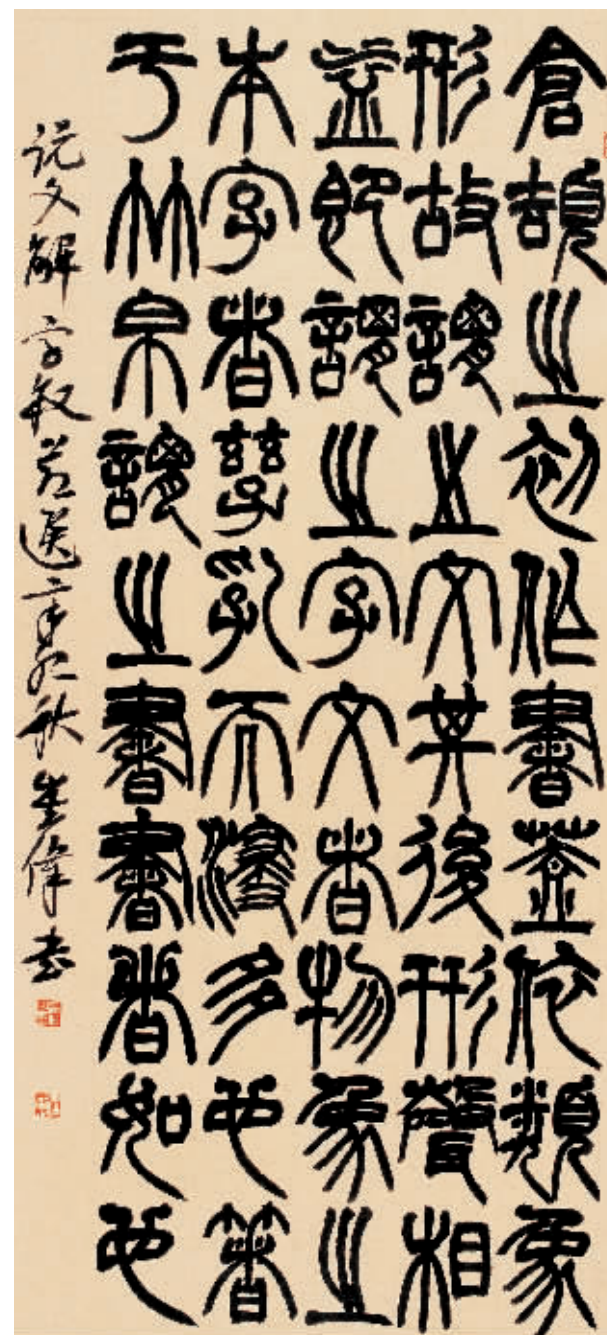 倉頡之初作書蓋依類象
形故謂之文其後形聲相
益即謂之字文者物象之
本字者孳乳而浸多也著
于竹帛謂之書書者如也
説文解字叙节選辛卯秋偉書